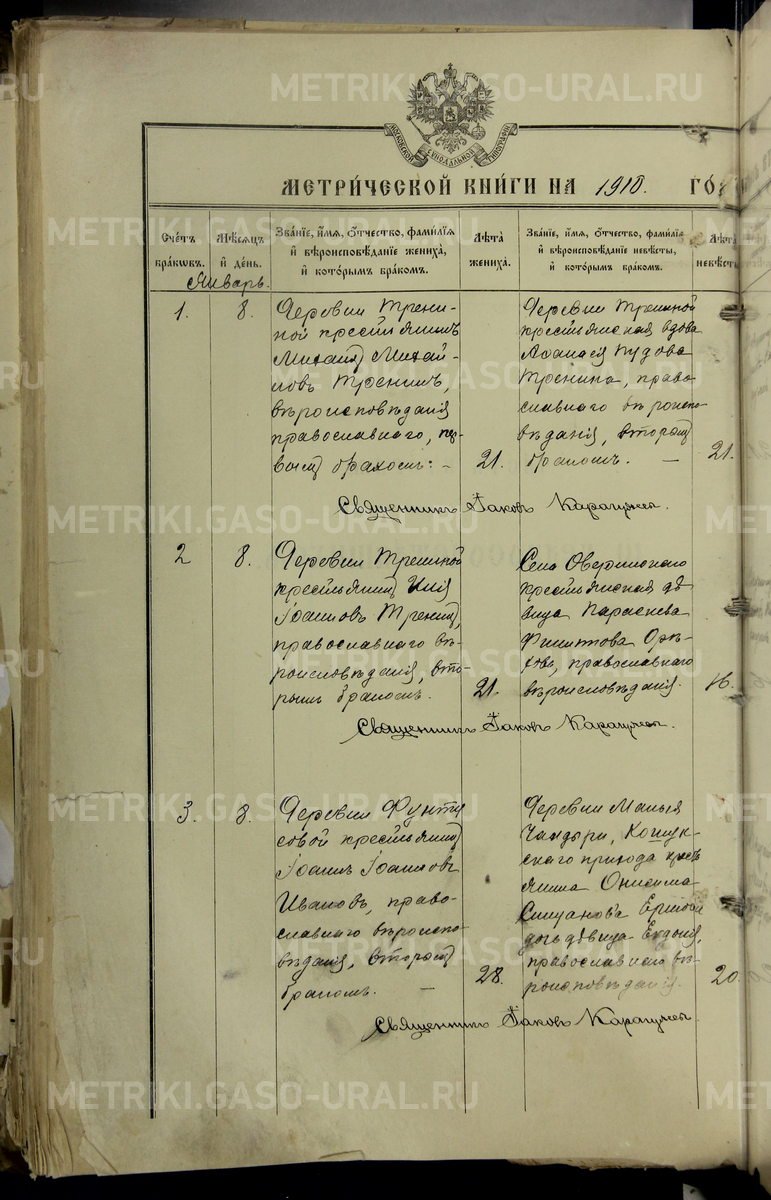 МОСКОВСКОЙ СѴНОДАЛЬНОЙ ТИПОГРАФІИ
МЕТРИ́ЧЕСКОЙ КНИ́ГИ НА 1910. ГО́
Сче́тъ бра́ковъ.
Мѣ́сяцъ й де́нь.
Зва́нїе, и҆́мѧ, ѻ҆́тчество, фами́лїѧ й вѣроисповѣ́данїе жениха̀, й кото́рымъ бра́комъ.
Лѣ́та жениха̀.
Зва́нїе, и҆́мѧ, ѻ҆́тчество, фами́лїѧ й вѣроисповѣ́данїе невѣ́сты, й кото́рымъ бра́комъ.
Лѣ́та невѣ́ст
Январь.
1.
8.
Деревни Трени-
ной крестьянинъ
Михаилъ Михай-
ловъ Тренинъ,
вѣроисповѣданія
православнаго, пер-
вымъ бракомъ: –
21.
Деревни Трениной
крестьянская вдова
Пудова
Тренина, право
славнаго вѣроиспо-
вѣданія, вторымъ
бракомъ. –
21.
Священникъ Іаковъ
2
8.
Деревни Трениной
крестьянинъ Илія
Іоанновъ Тренинъ,
православнаго вѣ-
роисповѣданія, вто-
рымъ бракомъ.
21.
Села
крестьянская дѣ-
вица Параскева
Филиппова
православнаго
вѣроисповѣданія.
16.
Священникъ Іаковъ
3.
8.
Деревни Фунту
совой крестьянинъ
Іоаннъ Іоанновъ
Ивановъ, право-
славнаго вѣроиспо-
вѣданія, вторымъ
бракомъ. –
28.
Деревни Малыя
Чандыри, Кошук-
скаго прихода крест
янина Онисима
дочь дѣвица Евдокія,
православнаго вѣ-
роисповѣданія.
20.
Священникъ Іаковъ
METRIKI.GASO-URAL.RU